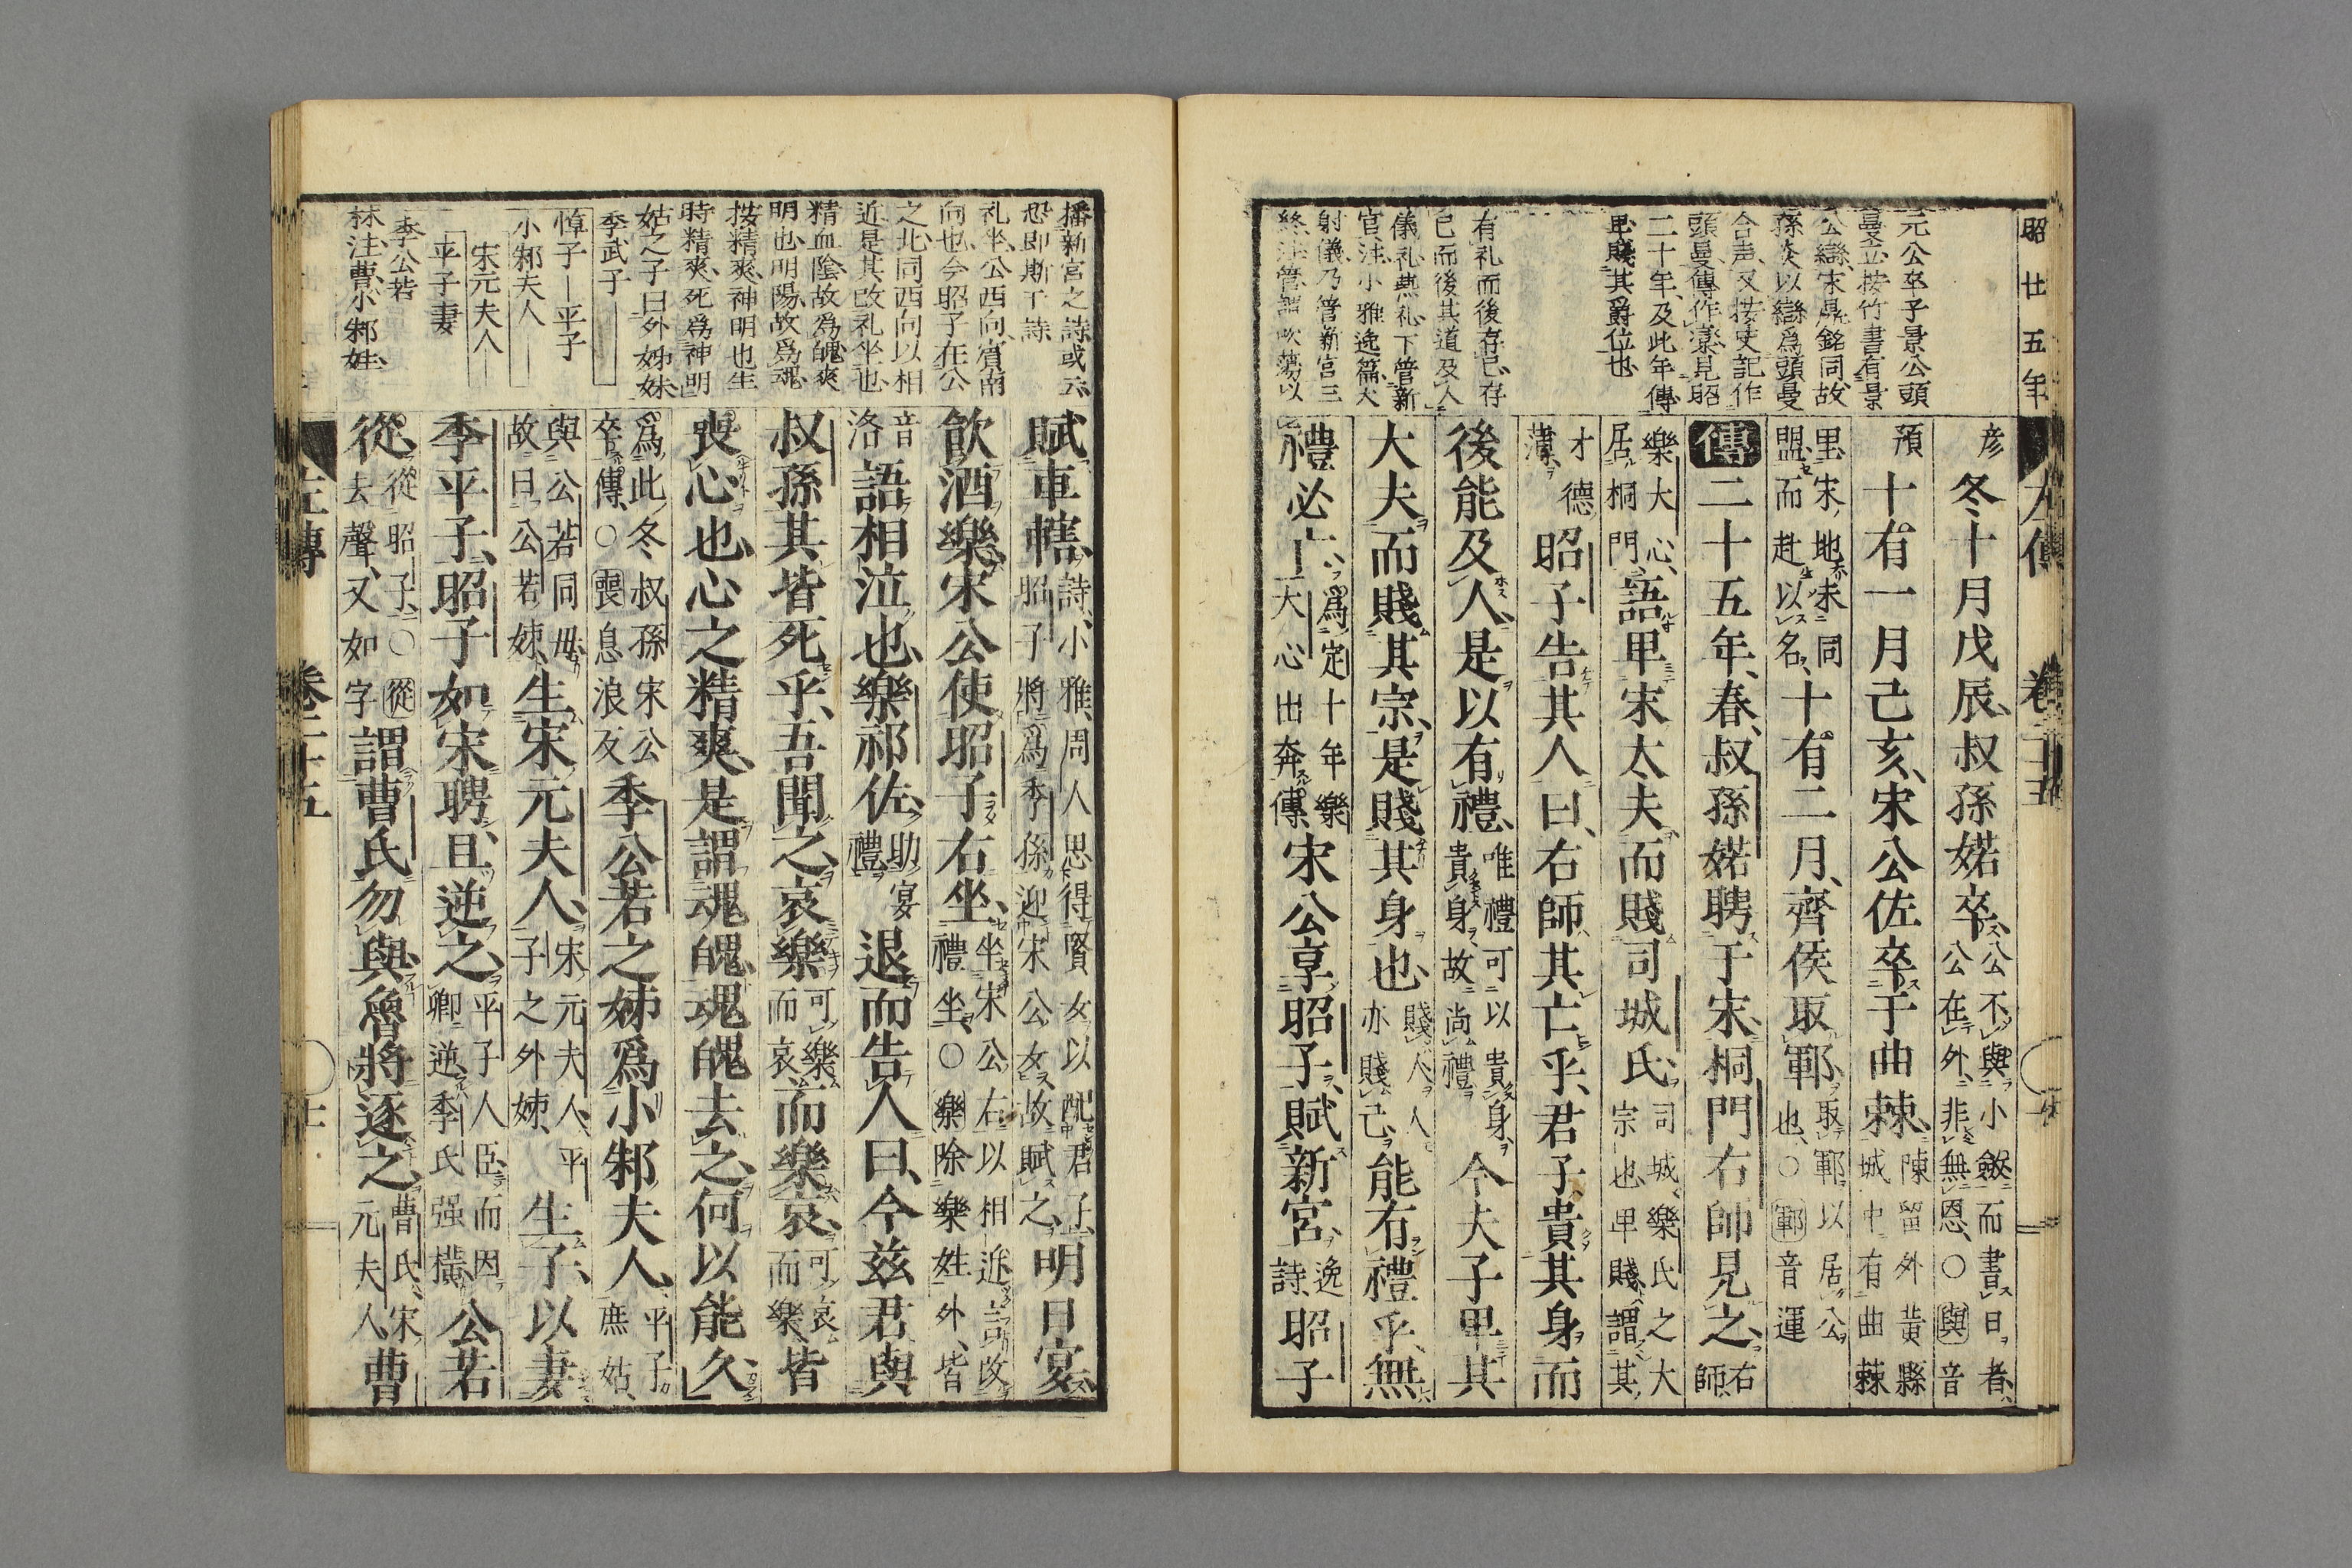 昭廿五年
元公卒子景公頭
曼立按竹書有景
公䜌宋鼎銘同故
孫炎以䜌爲頭曼
合声又按史記作
頭曼傳作灤見昭
二十年及此年傳
卑賤其爵位也
有礼而後存已存
已而後其道及人
儀礼燕礼下管新
宮注小雅逸篇大
射儀乃管新宮三
終注管謂吹蕩以
彦冬十月戊辰叔孫婼卒公不與小斂而書日者
公在外非無恩○與音
預十有一月己亥宋公佐卒于曲棘陳留外黃縣
城中有曲棘
里宋地未同
盟而赴以名十有二月齊侯取鄆取鄆以居公
也○鄆音運
傳二十五年春叔孫婼聘于宋桐門右師見之右
師
樂大心
居桐門語卑宋大夫而賤司城氏司城樂氏之大
宗也卑賤謂其
才德
薄昭子告其人曰右師其亡乎君子貴其身而
後能及人是以有禮唯禮可以貴身
貴身故尚禮今夫子卑其
大夫而賤其宗是賤其身也賤人人
亦賤己能有禮乎無
禮必亡爲定十年樂
大心出奔傳宋公享昭子賦新宮逸
詩昭子
賦車轄詩小雅周人思得賢女以配君子
昭子將爲季孫迎宋公女故賦之明日宴
飮酒樂宋公使昭子右坐坐宋公右以相近言改
禮坐○樂除樂姓外皆
音
洛語相泣也樂祁佐助宴
禮退而告人曰今玆君與
叔孫其皆死乎吾聞之哀樂可樂
而哀而樂哀可哀
而樂皆
喪心也心之精爽是謂魂魄魂魄去之何以能久
爲此冬叔孫宋公
卒傳○喪息浪反季公若之姊爲小邾夫人平子
庶姑
與公若同母
故曰公若姊生宋元夫人宋元夫人平
子之外姊生子以妻
季平子昭子如宋聘且逆之平子人臣而因
卿逆季氏强橫公若
從從昭子○從
去聲又如字謂曹氏勿與魯將逐之曹氏宋
元夫人曹
播新宮之詩或云
恐即斯干詩
礼坐公西向賓南
向也今昭子在公
之北同西向以相
近是其改礼坐也
精血陰故爲魄爽
明也明陽故爲魂
按精爽神明也生
時精爽死爲神明
姑之子曰外姊妹
季武子
悼子－平子
小邾夫人
宋元夫人
平子妻
季公若
林注曹小邾姓
左傳　卷二十五